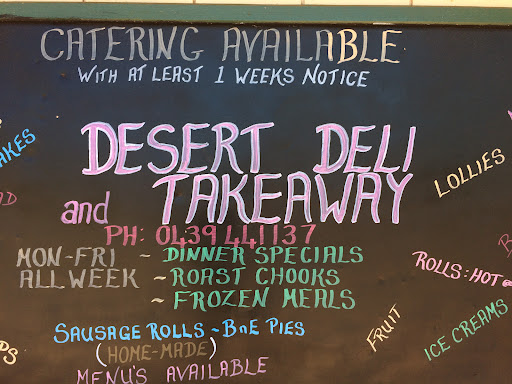 CATERING AVAILABLE
WITH AT LEAST 1 WEEKS NOTICE
DESERT DELI
and TAKEAWAY
PH: 0439 441137
MON-FRI ~ DINNER SPECIALS
ALL WEEK ~ ROAST CHOOKS
~ FROZEN MEALS
SAUSAGE ROLLS ~ BnE PIES
(HOME-MADE)
MENU'S AVAILABLE
LOLLIES
ROLLS: HOT
FRUIT
ICE CREAMS